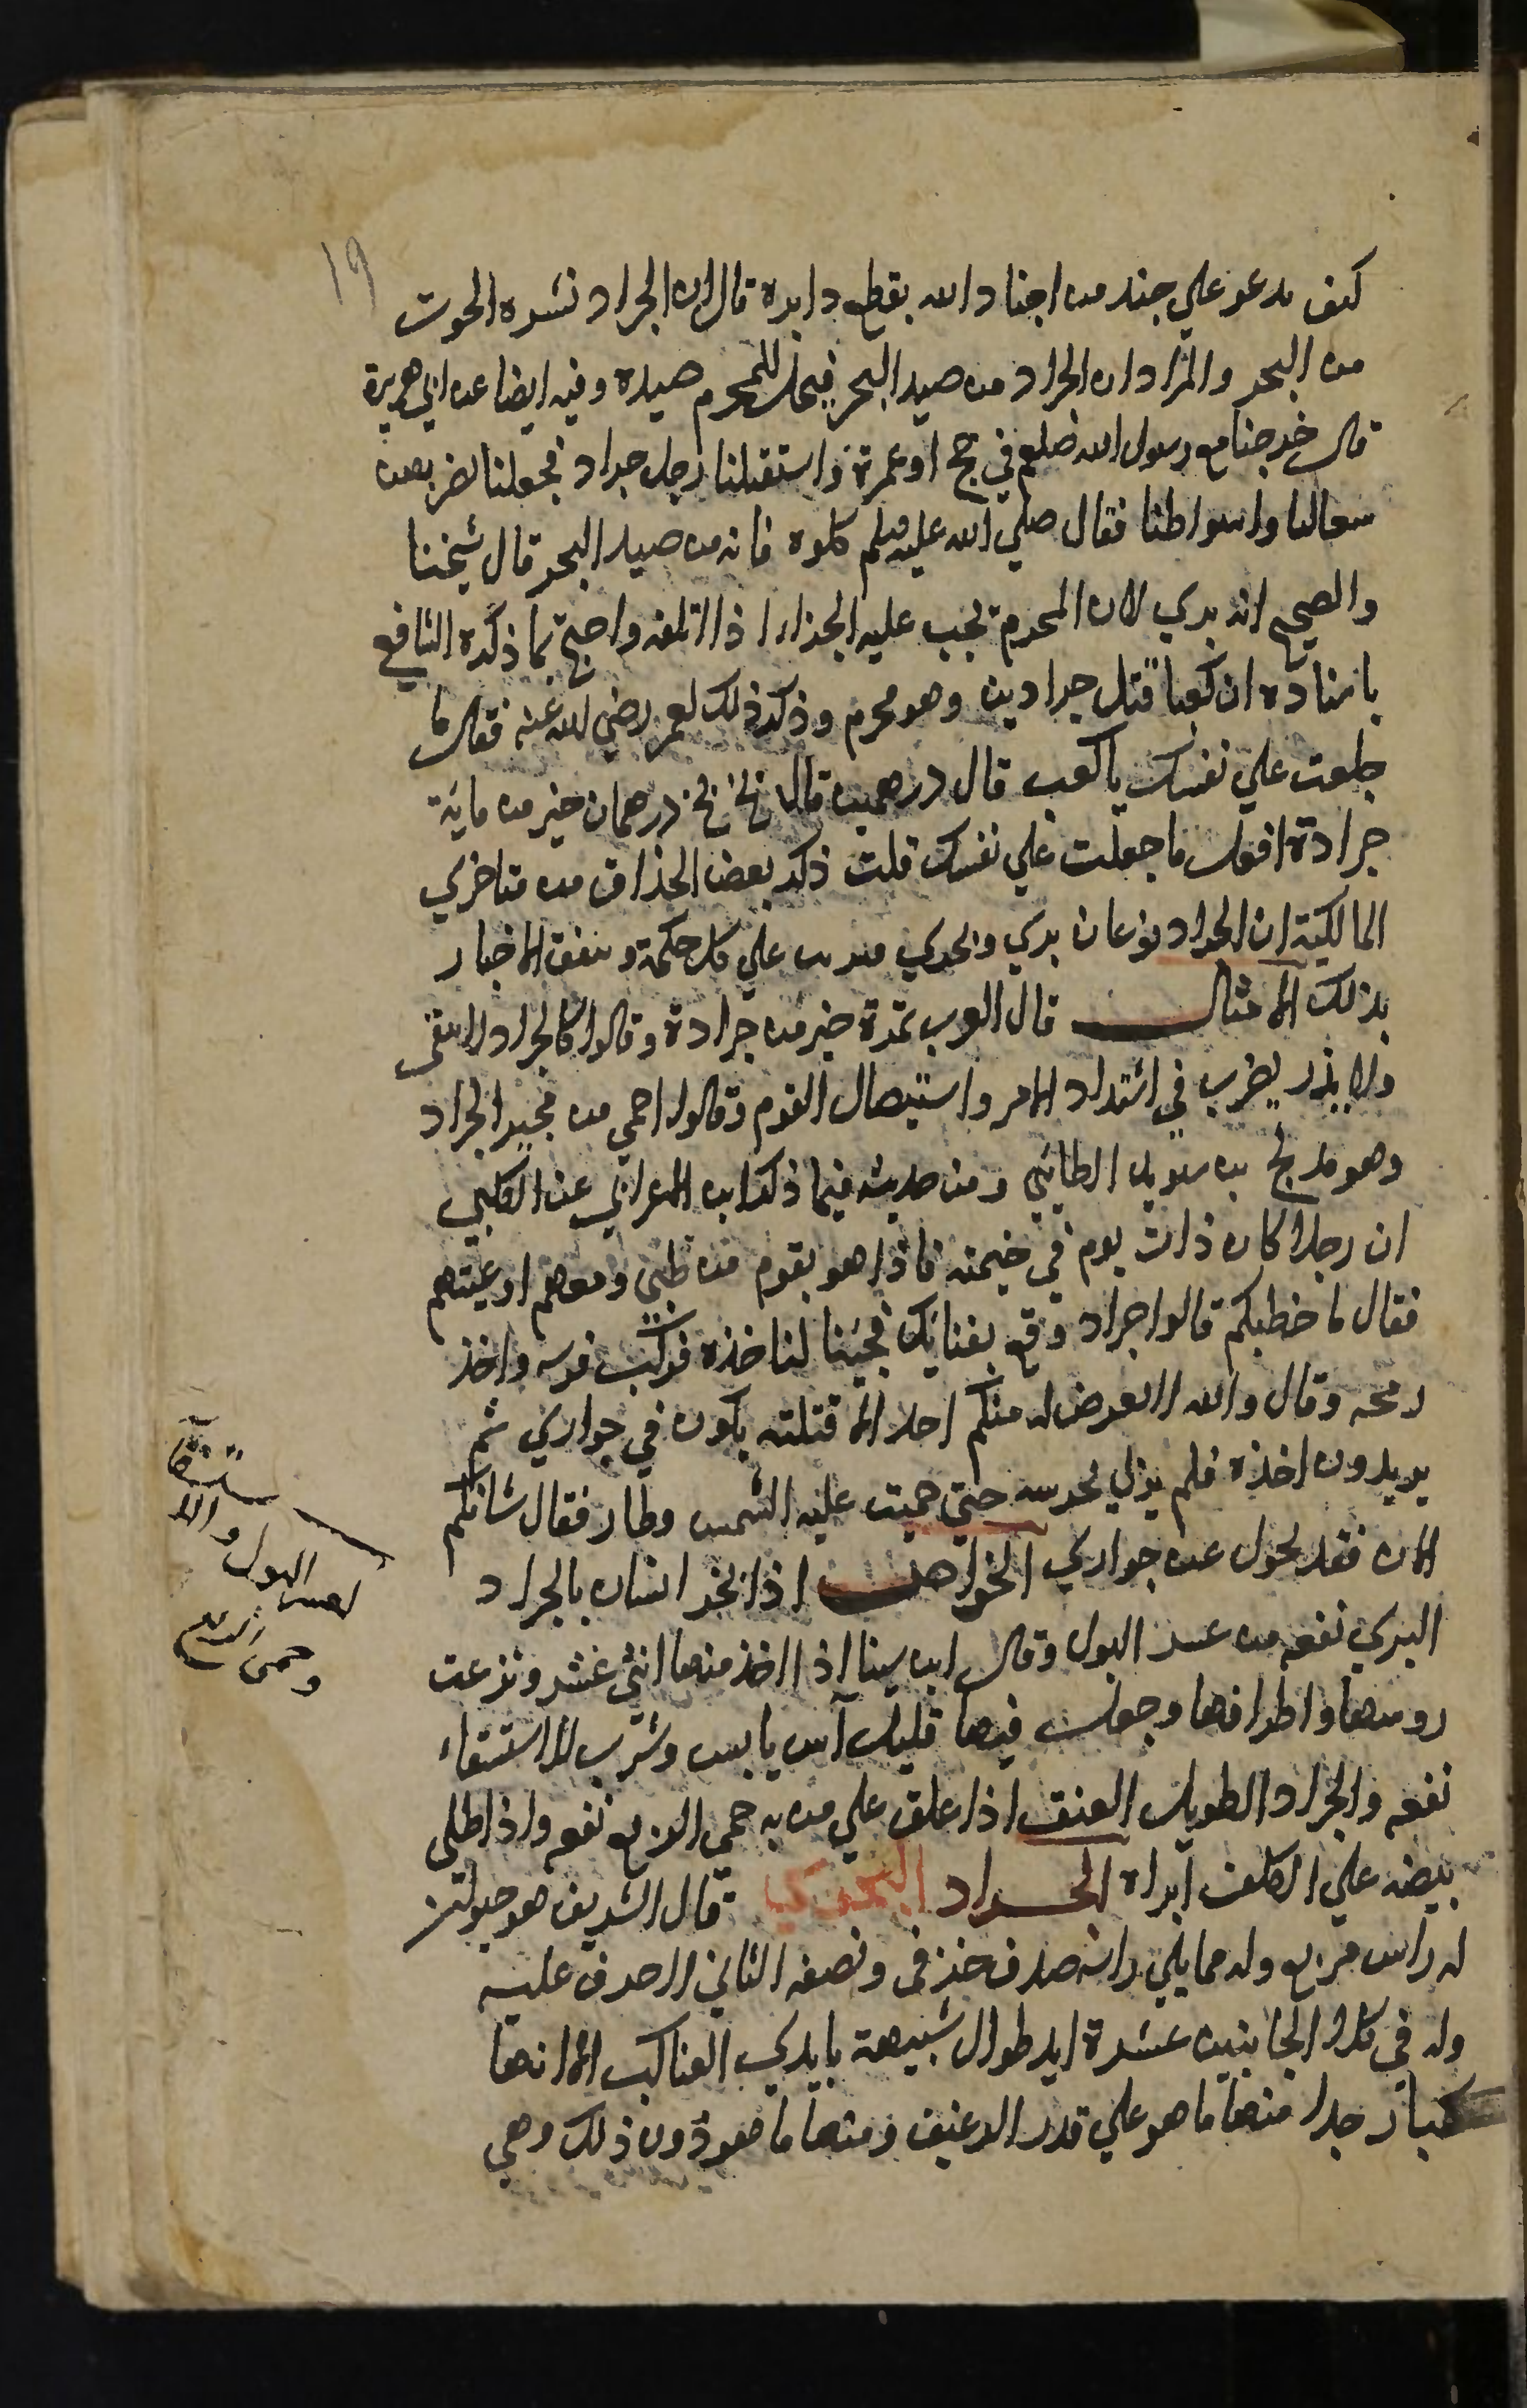 ١٩
كيف تدعو علي جند من اجناد الله بقطع دابره قال ان الجراد نثره الحوت
من البحر والمراد ان الجراد من صيد البحر فيحل للمحرم صيده وفيه ايضا عن ابي هريرة
قال خرجنا مع رسول الله صلعم في حج او عمرة فاستقبلنا رجل جراد فجعلنا نضربهن
بنعالنا واسواطنا فقال صلي الله عليه وسلم كلوه فانه من صيد البحر قال شيخنا
والصحيح انه بري لان المحرم يجب عليه الجزاء اذا اتلفه واحتج بما ذكره الشافعي
باسناده ان كعبا قتل جرادتين وهو محرم وذكر ذلك لعمر رضي الله عنه فقال ما
جعلت علي نفسك يا كعب قال درهمين قال بخ بخ درهمان خير من ماية
جرادة افعل ما جعلت علي نفسك قلت ذكر بعض الحذاق من متاخري
المالكية ان الجراد نوعان بري وبحري فيترتب علي كل حكمه وتتفق الاخبار
بذلك الامثال قال العرب تمرة خير من جرادة وقالوا كالجراد لا يبقى
ولا يذر يضرب في اشتداد الامر واستيصال القوم وقالوا احمي من مجير الجراد
وهو مدلج بن سويد الطايي ومن حديثه فيما ذكر ابن الاعرابي عن الكلبي
ان رجلا كان ذات يوم في خيمته فاذا هو بقوم من طيي ومعهم اوعيتهم
فقال ما خطبكم قالوا جراد وقع بفنايك فجينا لناخذه فركب فرسه واخذ
رمحه وقال والله لا يعرض له منكم احد الا قتلته يكون في جواري ثم
يريدون اخذه فلم يزل يحرسه حتي حميت عليه الشمس وطار فقال شانكم
الان فقد تحول عن جواري الخواص اذا تبخر انسان بالجراد
البري نفعه من عسر البول وقال ابن سينا اذا اخذ منها اثني عشر ونزعت
روسها واطرافها وجعل فيها قليل آس يابس وشرب للاستسقاء
نفعه والجراد الطويل العنق اذا علق علي من به حمي الربع نفعه واذا طلي
بيضه علي الكلف ابراه الجراد البحري قال الشريف هو حيوان
له راس مربع وله مما يلي راسه صدف خزفي ونصفه الثاني لا صدف عليه
وله في كلا الجانبين عشرة ايد طوال شبيهة بايدي العناكب الا انها
كبار جدا منها ما هو علي قدر الرغيف ومنها ما هو دون ذلك وهي
لعسر البول والا
ستسقا
وحمى الربع